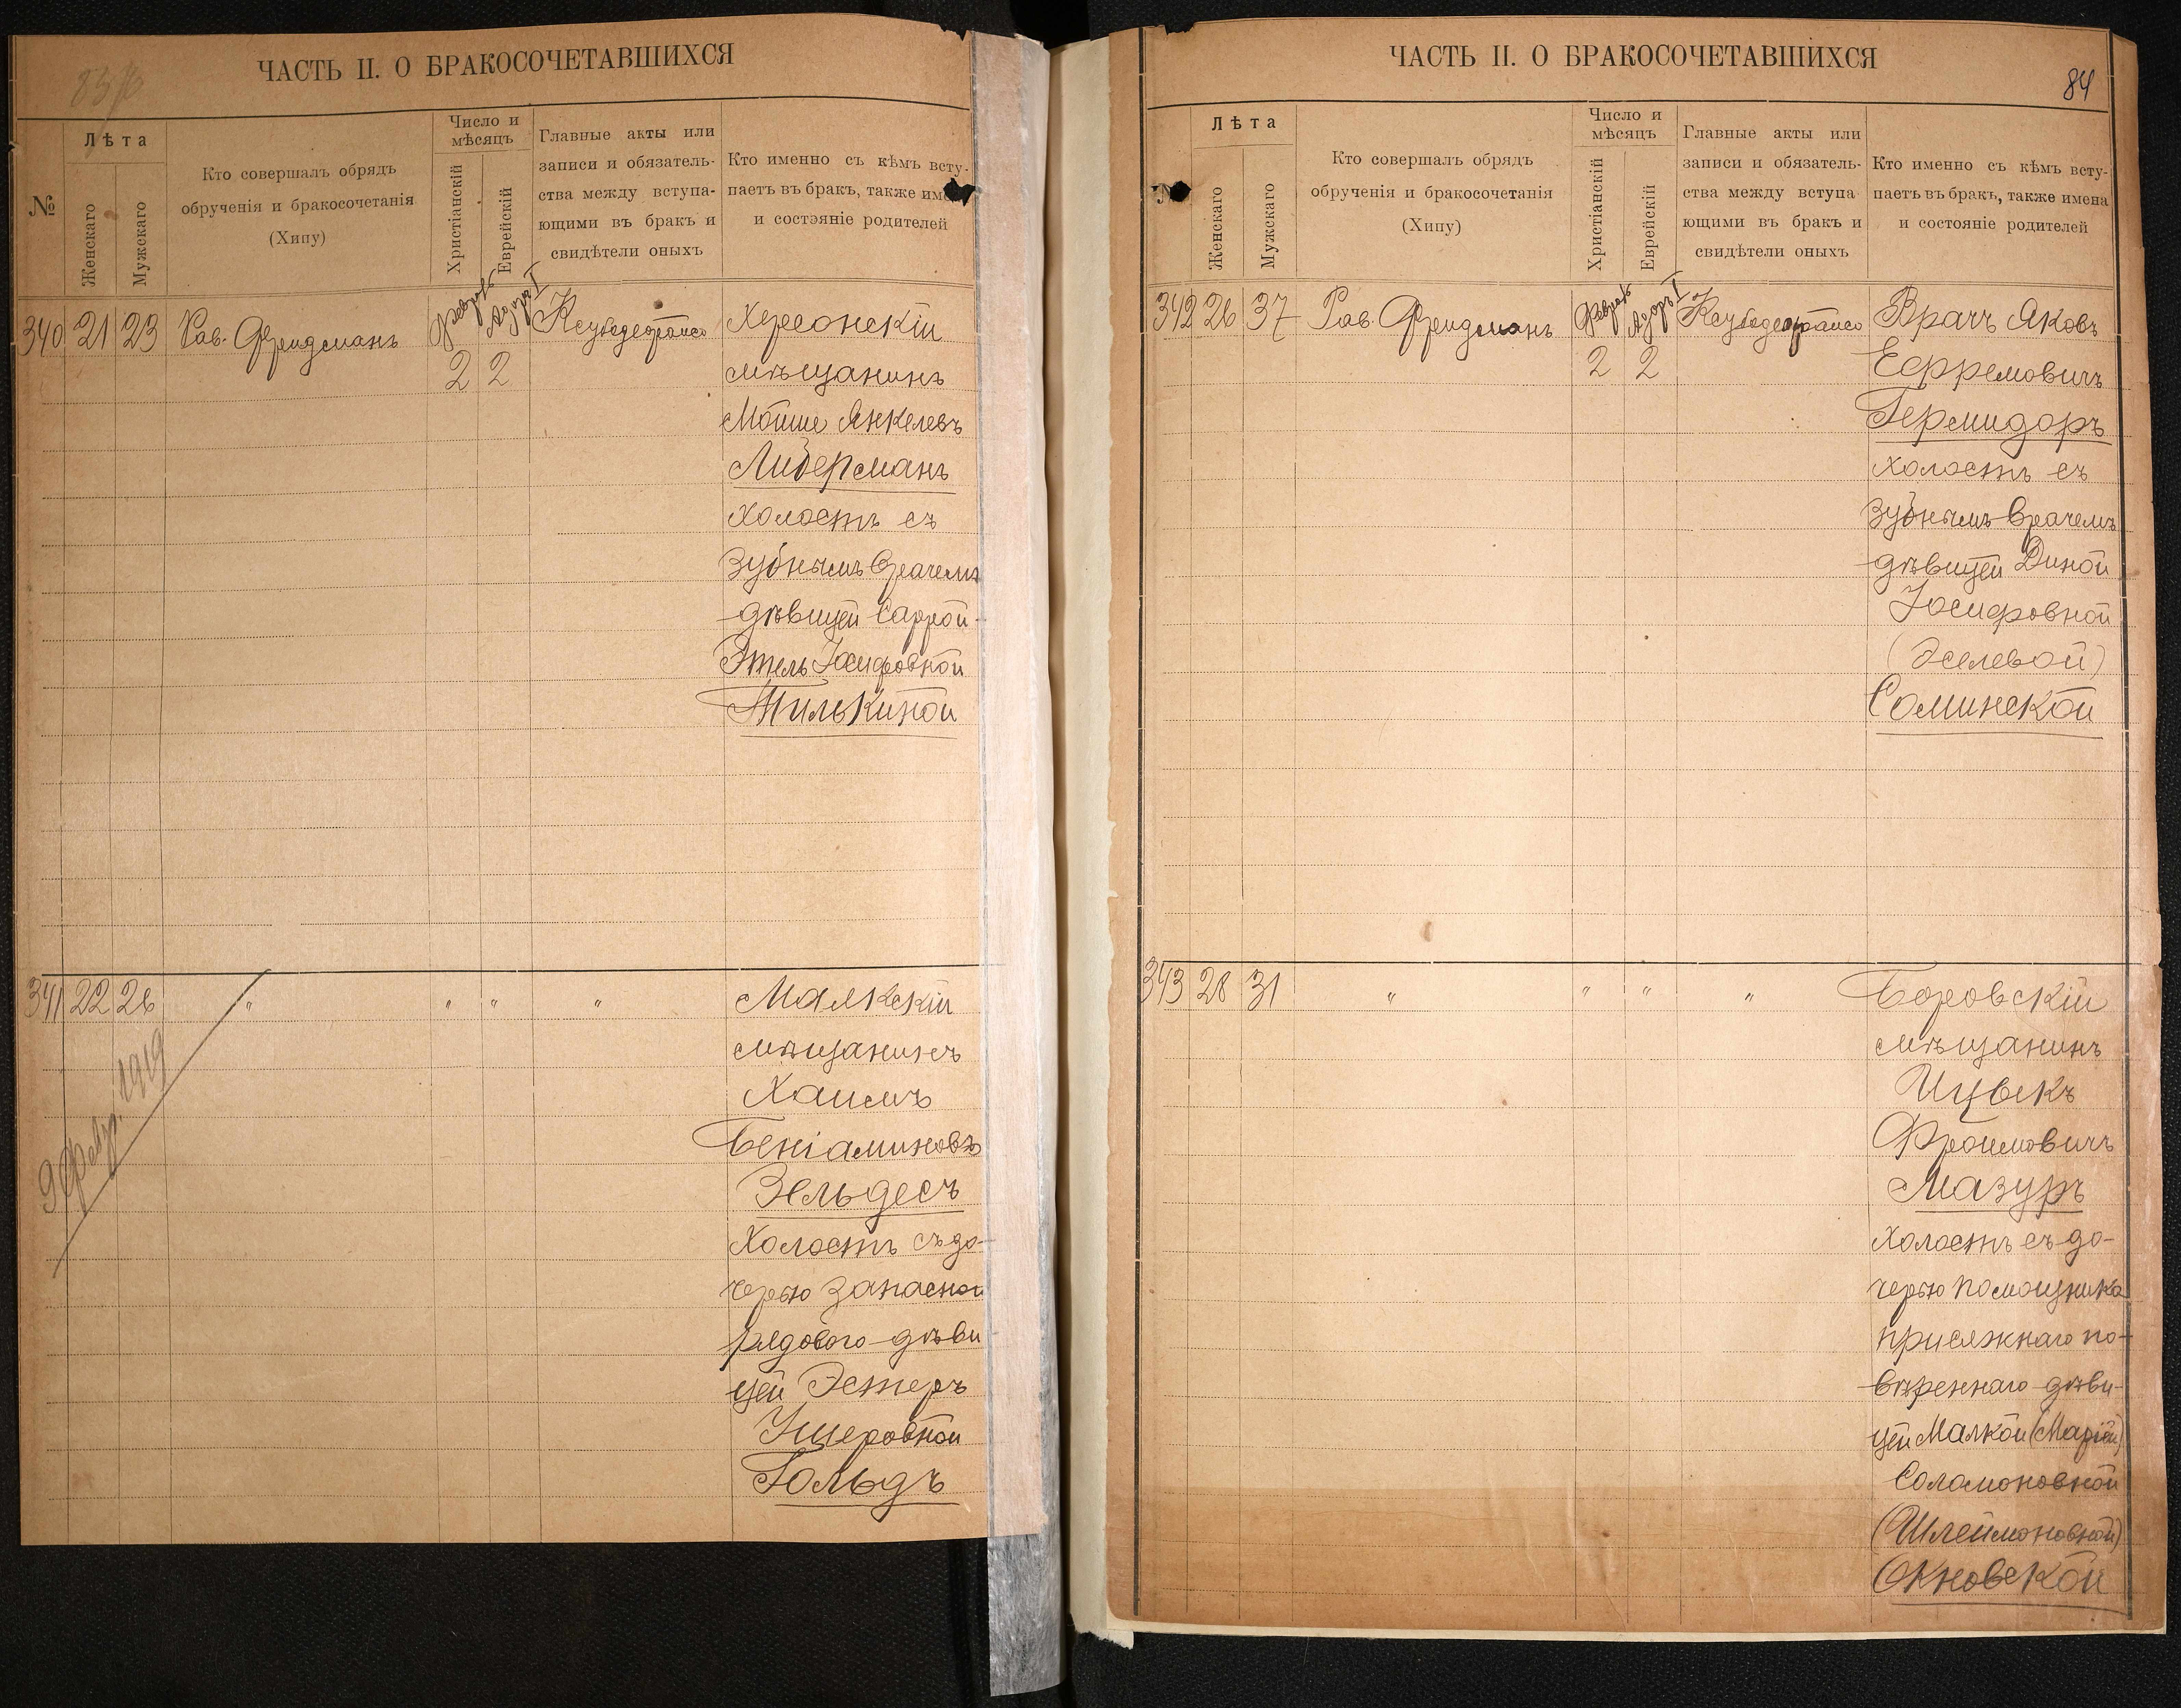 83 об
ЧАСТЬ II. О БРАКОСОЧЕТАВШИХСЯ
№
Лѣта
Женскаго
Мужскаго
Кто совершалъ обрядъ
обрученія и бракосочетанія
(Хипу)
Число и
мѣсяцъ
Христіанскій
Еврейскій
Главные акты или
записи и обязатель-
ства между вступа-
ющими въ бракъ и
свидѣтели оныхъ
Кто именно съ кѣмъ всту-
паетъ въ бракъ, также имена
и состэяніе родителей
340 21 23 Рав. Фридманъ Февраль Адоръ I
2 2
Херсонскій
мѣщанинъ
Мойше Янкелевъ
Либерманъ
холостъ съ
зубнымъ врачемъ
дѣвицей Саррой-
Этель Іосифовной
Тилькиной
341 22 26 " " " "
9 февр. 1919
Маякскій
мѣщанинъ
Хаимъ
Беніаминовъ
Зельдесъ
Холостъ съ до-
черью запасной
рядового дѣви
цей Эстеръ
Ушеровной
Гольдъ
84
ЧАСТЬ II. О БРАКОСОЧЕТАВШИХСЯ
№
Лѣта
Женскаго
Мужскаго
Кто совершалъ обрядъ
обрученія и бракосочетанія
(Хипу)
Число и
мѣсяцъ
Христіанскій
Еврейскій
Главные акты или
записи и обязатель-
ства между вступа
ющими въ бракъ и
свидѣтели оныхъ
Кто именно съ кѣмъ всту-
паетъ въ бракъ, также имена
и состояніе родителей
342 26 37 Рав. Фридманъ Февраль Адоръ I
2 2
Врачъ Яковъ
Ефремовичъ
Гермидоръ
холостъ съ
зубнымъ врачемъ
дѣвицей Диной
Іосифовной
Соминской
343 28 31 " " " "
Боровскій
мѣщанинъ
Ицыкъ
Фроимовичъ
Мазуръ
холостъ съ до-
черью помощника
присяжнаго по-
вѣреннаго дѣви-
цей Малкой (Маріей)
Соломоновной
(Шлеймоновной)
Окновской